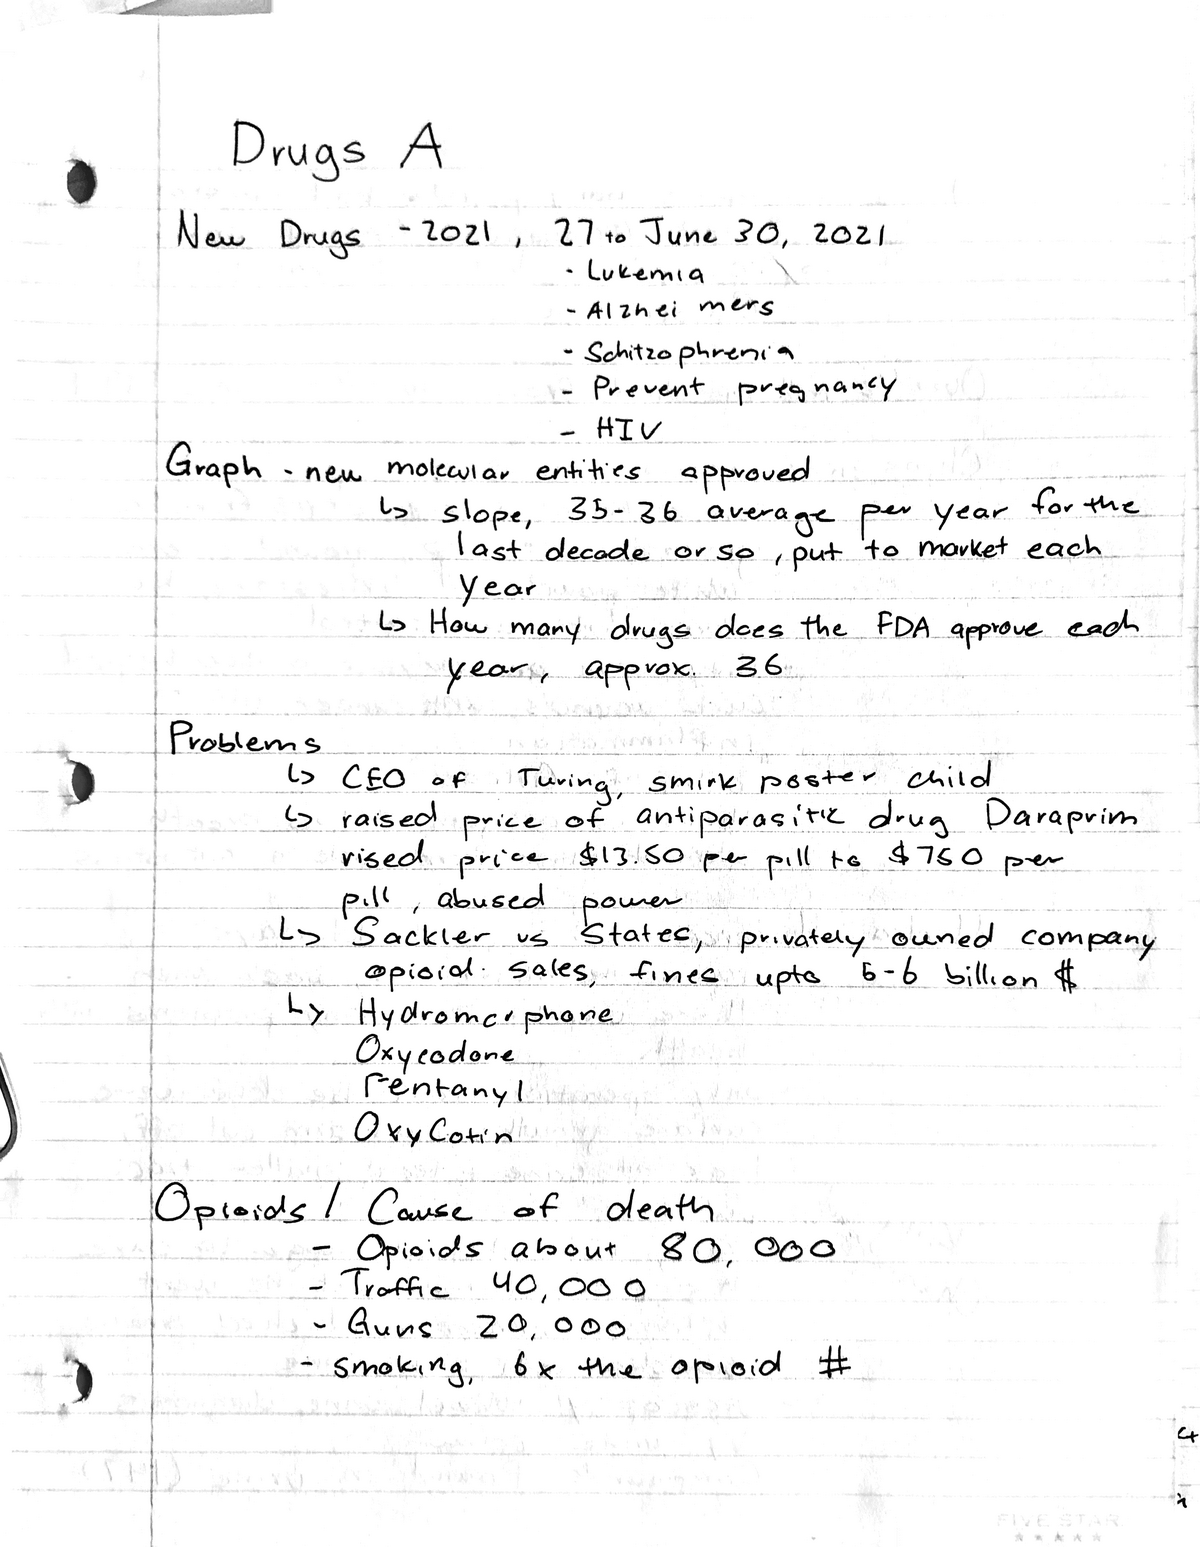 Drugs A
New Drugs - 2021, 27 to June 30, 2021
- Lukemia
- Alzheimers
- Schitzophrenia
- Prevent pregnancy
- HIV
Graph - new molecular entities approved
↳ slope, 35-36 average per year for the
last decade or so, put to market each
year
↳ How many drugs does the FDA approve each
year, approx. 36
Problems
↳ CEO of Turing, smirk poster child
↳ raised price of antiparasitic drug Daraprim
rised price $13.50 per pill to $750 per
pill, abused power
↳ Sackler vs States, privately owned company
opioid sales, fines upto 5-6 billion $
↳ Hydromorphone
Oxycodone
Fentanyl
OxyCotin
Opioids / Cause of death
- Opioids about 80,000
- Traffic 40,000
- Guns 20,000
- smoking, 6x the opioid #
FIVE STAR